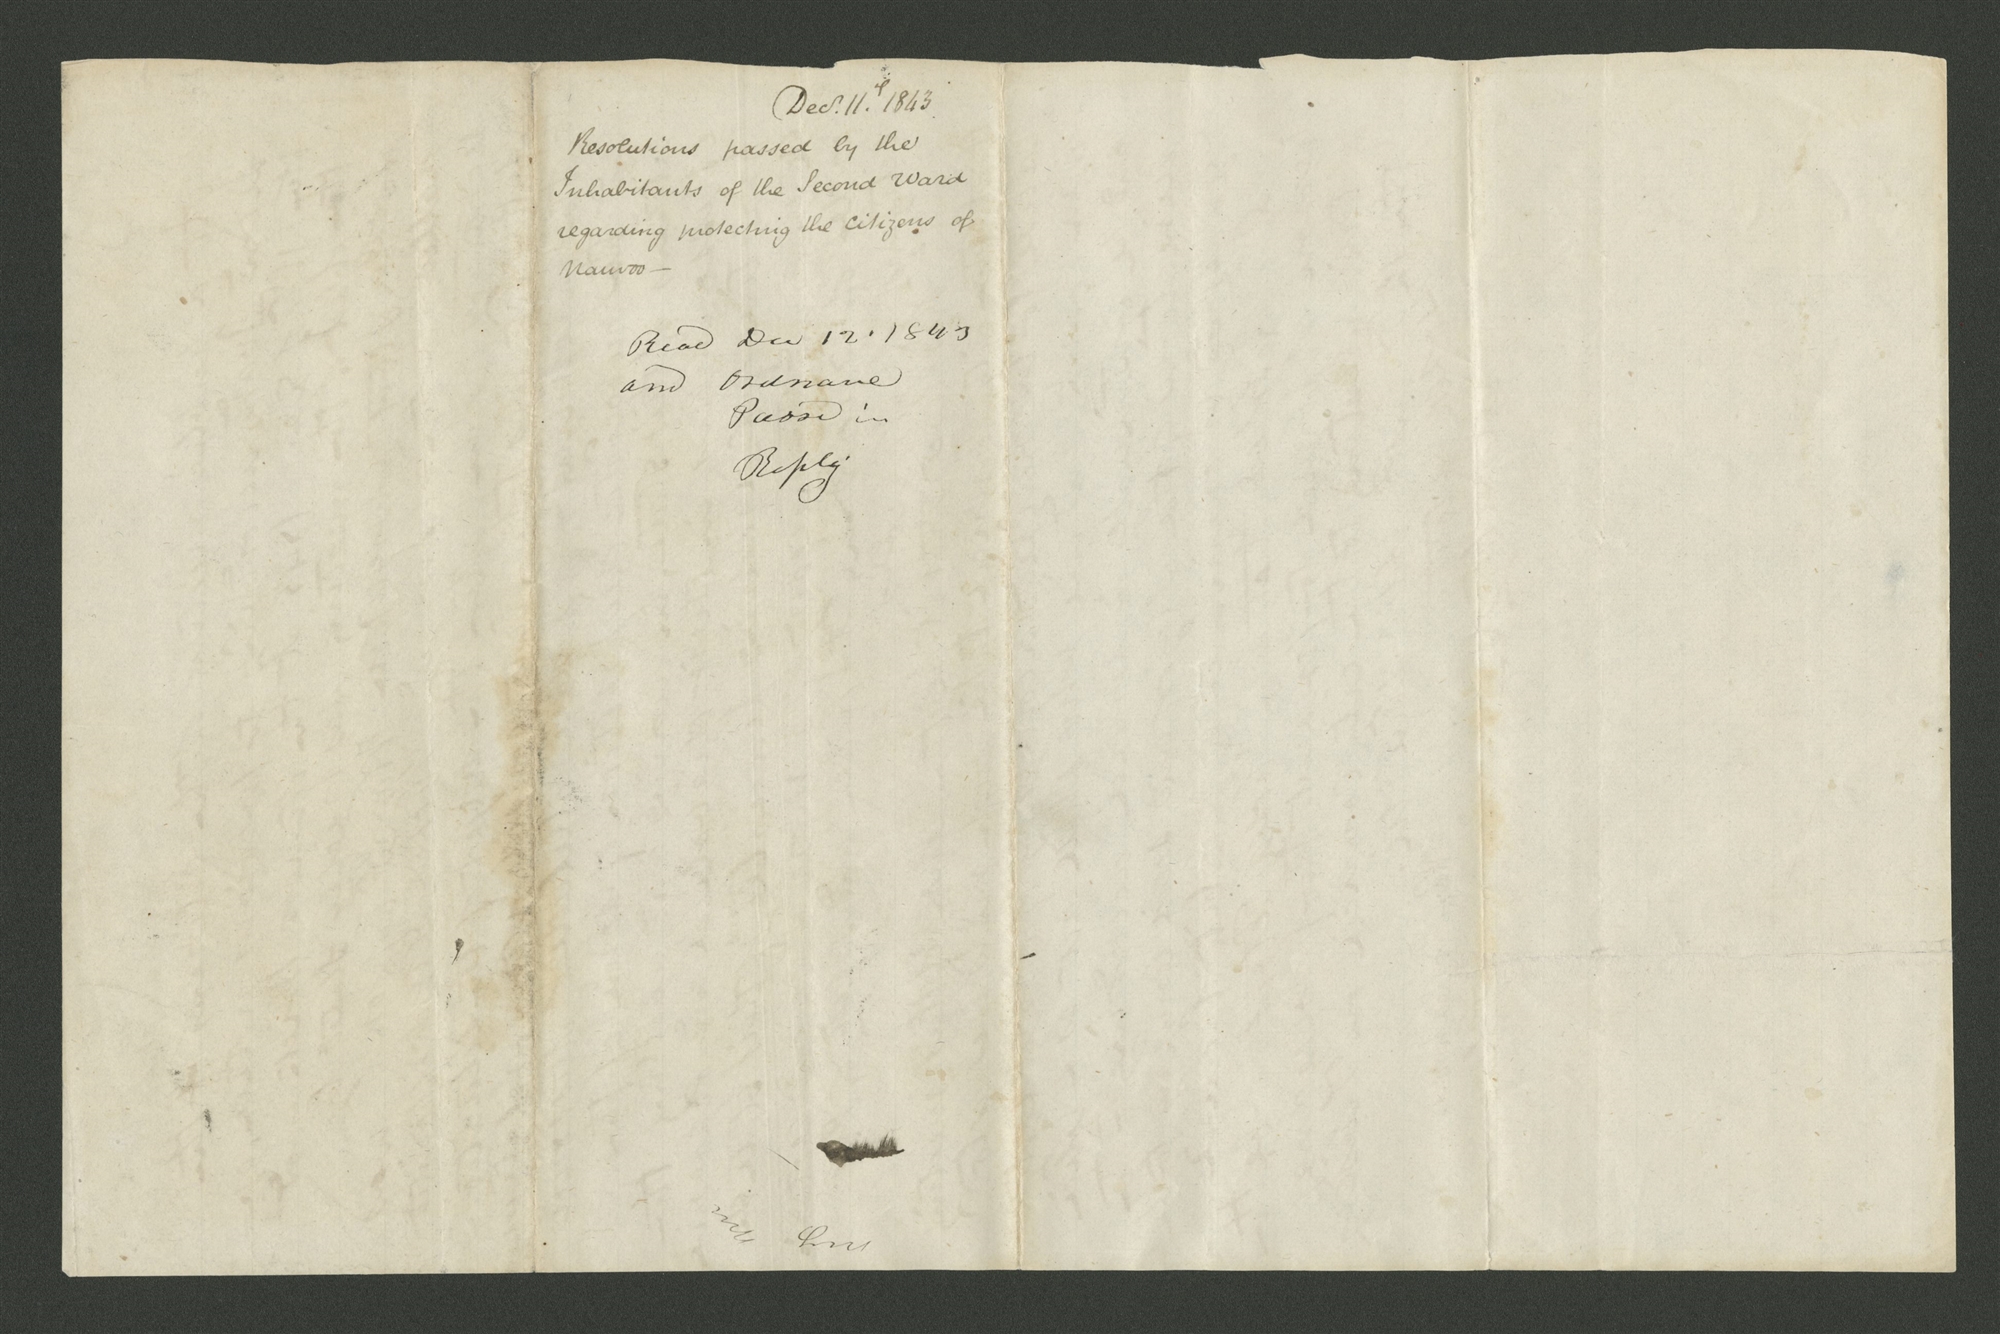 Decr. 11th 1843
Resolutions passed by the
Inhabitants of the Second Ward
regarding protecting the citizens of
Nauvoo —
Read Dec 12. 1843
and Ordnance
Passd in
Reply